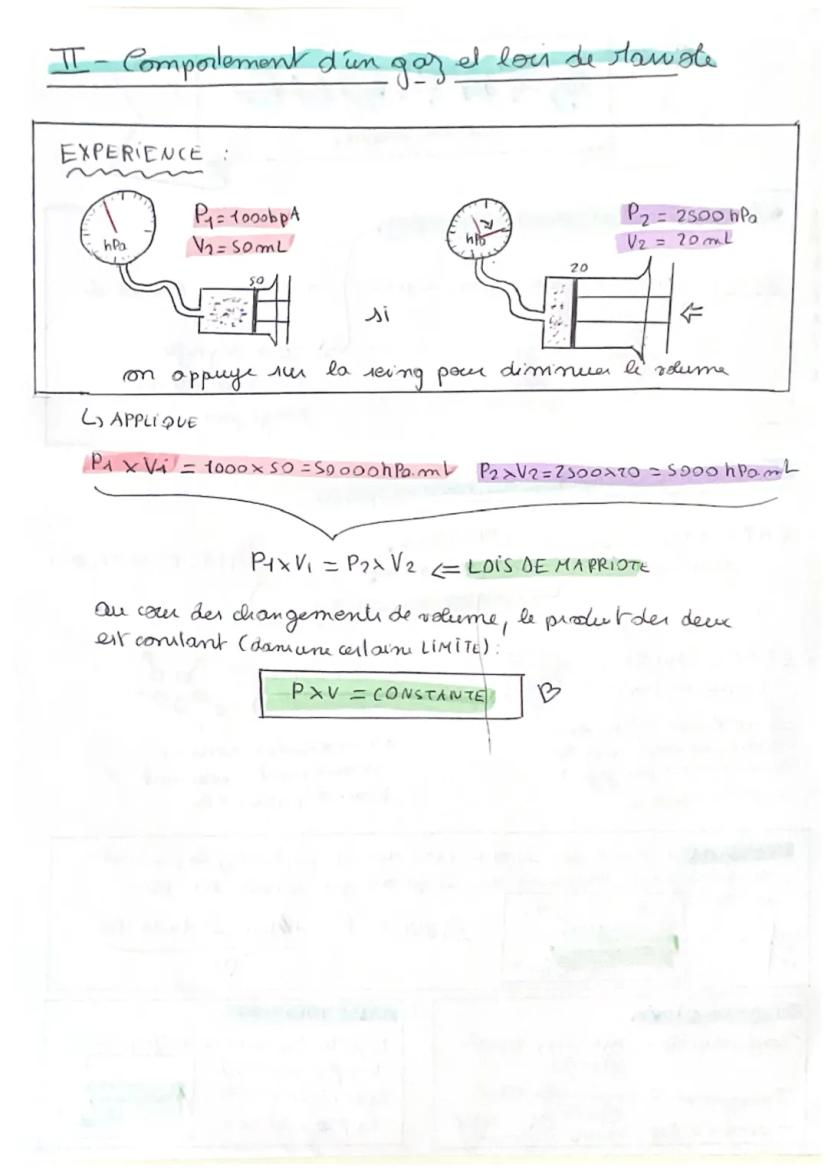 II - Comportement d'un gaz et lois de Mariote
EXPERIENCE :
P1 = 1000hpA
V2 = 50mL
hPa
50
si
P2 = 2500 hPa
V2 = 20 mL
hPa
20
⇐
on appuye sur la sering pour diminuer le volume
↳ APPLIQUE
P1 x V1 = 1000 x 50 = 50000hPa.mL P2xV2=2500x20 = 5000 hPa.mL
P1xV1 = P2xV2 <= LOIS DE MAPRIOTE
au cour des changements de volume, le produit des deux
est constant (dans une certaine LIMITE) :
PXV = CONSTANTE